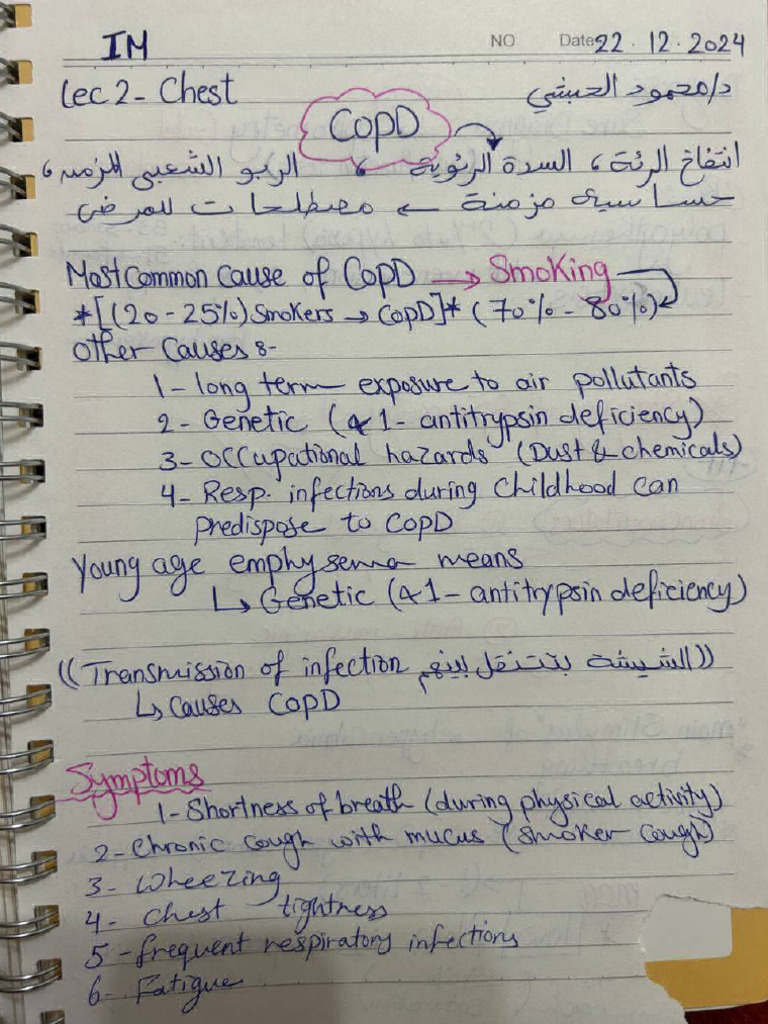 IM
NO Date 22.12.2024
Lec 2- Chest د/محمود الحبشي
COPD
انتفاخ الرئة، السدة الرئوية، الربو الشعبي المزمن،
حساسية مزمنة ← مصطلحات للمرض
Most common cause of COPD → Smoking
*[(20-25%) Smokers → COPD]* (70% - 80%)
Other Causes :-
1- long term exposure to air pollutants
2- Genetic (α1- antitrypsin deficiency)
3- Occupational hazards (Dust & chemicals)
4- Resp. infections during Childhood Can
Predispose to COPD
Young age emphysema means
↳ Genetic (α1- antitrypsin deficiency)
((Transmission of infection الشيشة بتتنقل بينهم))
↳ Causes COPD
Symptoms
1- Shortness of breath (during physical activity)
2- Chronic cough with mucus (Smoker Cough)
3- Wheezing
4- Chest tightness
5- frequent respiratory infections
6- Fatigue